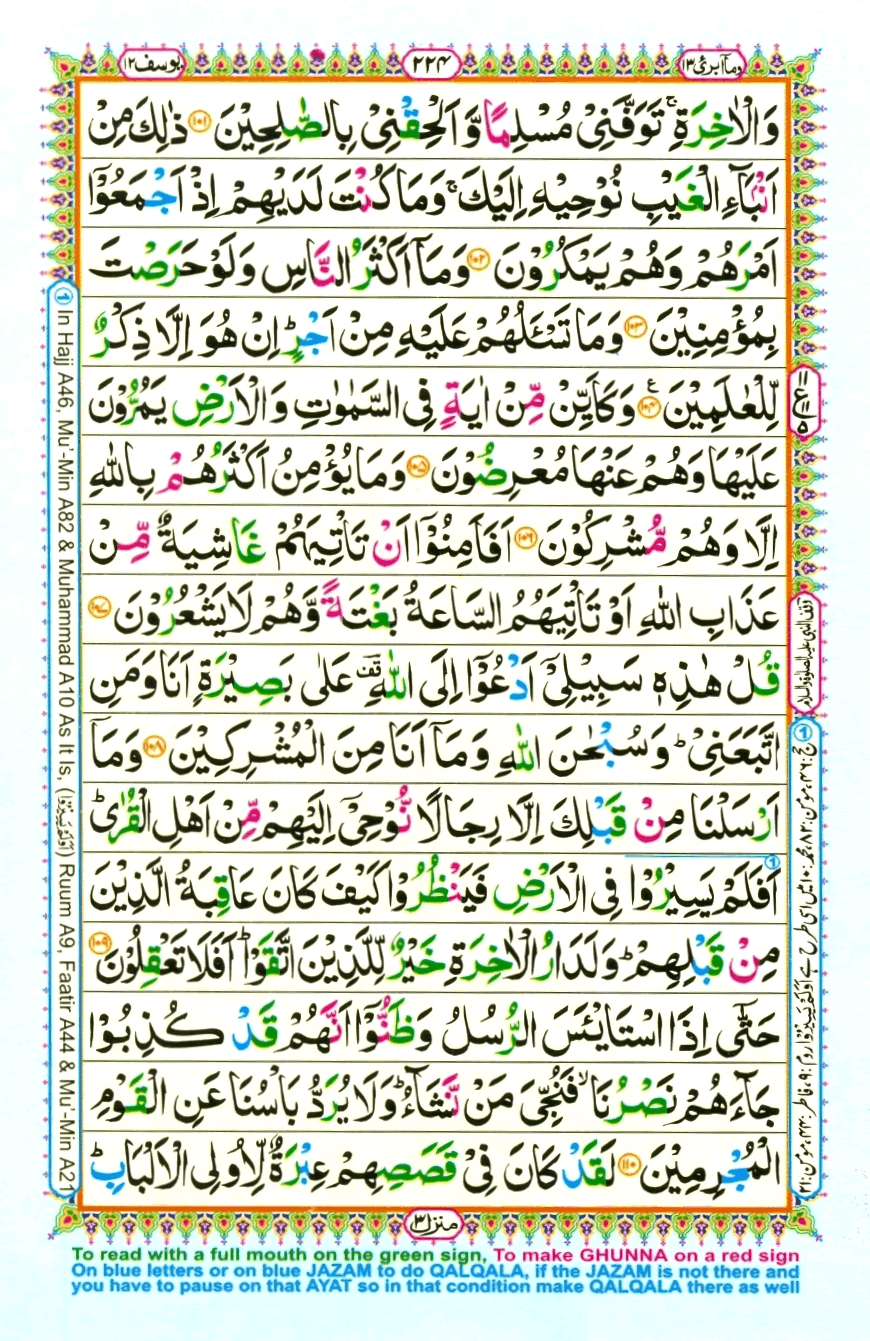 وماۤ ابرئ ١٣
٢٢٤
يوسف ١٢
وَالْاٰخِرَةِ ۚ تَوَفَّنِيْ مُسْلِمًا وَّاَلْحِقْنِيْ بِالصّٰلِحِيْنَ ﴿١٠١﴾ ذٰلِكَ مِنْ
اَنْۢبَآءِ الْغَيْبِ نُوْحِيْهِ اِلَيْكَ ۚ وَمَا كُنْتَ لَدَيْهِمْ اِذْ اَجْمَعُوْۤا
اَمْرَهُمْ وَهُمْ يَمْكُرُوْنَ ﴿١٠٢﴾ وَمَاۤ اَكْثَرُ النَّاسِ وَلَوْ حَرَصْتَ
بِمُؤْمِنِيْنَ ﴿١٠٣﴾ وَمَا تَسْـَٔلُهُمْ عَلَيْهِ مِنْ اَجْرٍ ؕ اِنْ هُوَ اِلَّا ذِكْرٌ
لِّلْعٰلَمِيْنَ ﴿١٠٤﴾ ع وَكَاَيِّنْ مِّنْ اٰيَةٍ فِي السَّمٰوٰتِ وَالْاَرْضِ يَمُرُّوْنَ
عَلَيْهَا وَهُمْ عَنْهَا مُعْرِضُوْنَ ﴿١٠٥﴾ وَمَا يُؤْمِنُ اَكْثَرُهُمْ بِاللّٰهِ
اِلَّا وَهُمْ مُّشْرِكُوْنَ ﴿١٠٦﴾ اَفَاَمِنُوْۤا اَنْ تَاْتِيَهُمْ غَاشِيَةٌ مِّنْ
عَذَابِ اللّٰهِ اَوْ تَاْتِيَهُمُ السَّاعَةُ بَغْتَةً وَّهُمْ لَا يَشْعُرُوْنَ ﴿١٠٧﴾
قُلْ هٰذِهٖ سَبِيْلِيْۤ اَدْعُوْۤا اِلَى اللّٰهِ ؔقف عَلٰى بَصِيْرَةٍ اَنَا وَمَنِ
اتَّبَعَنِيْ ؕ وَسُبْحٰنَ اللّٰهِ وَمَاۤ اَنَا مِنَ الْمُشْرِكِيْنَ ﴿١٠٨﴾ وَمَاۤ
اَرْسَلْنَا مِنْ قَبْلِكَ اِلَّا رِجَالًا نُّوْحِيْۤ اِلَيْهِمْ مِّنْ اَهْلِ الْقُرٰى ؕ
اَفَلَمْ يَسِيْرُوْا فِي الْاَرْضِ فَيَنْظُرُوْا كَيْفَ كَانَ عَاقِبَةُ الَّذِيْنَ
مِنْ قَبْلِهِمْ ؕ وَلَدَارُ الْاٰخِرَةِ خَيْرٌ لِّلَّذِيْنَ اتَّقَوْا ؕ اَفَلَا تَعْقِلُوْنَ ﴿١٠٩﴾
حَتّٰۤى اِذَا اسْتَايْـَٔسَ الرُّسُلُ وَظَنُّوْۤا اَنَّهُمْ قَدْ كُذِبُوْا
جَآءَهُمْ نَصْرُنَا ۙ فَنُجِّيَ مَنْ نَّشَآءُ ؕ وَلَا يُرَدُّ بَاْسُنَا عَنِ الْقَوْمِ
الْمُجْرِمِيْنَ ﴿١١٠﴾ لَقَدْ كَانَ فِيْ قَصَصِهِمْ عِبْرَةٌ لِّاُولِي الْاَلْبَابِ ؕ
منزل ٣
وقف النبي عليه الصلوة والسلام
① حج: ٤٦، مومن: ٨٢، محمد: ١٠ میں اسی طرح ہے اَوَلَمْ يَسِيْرُوْا روم: ٩، فاطر: ٤٤، مومن: ٢١
① In Hajj A46, Mu'-Min A82 & Muhammad A10 As It Is, (اَوَلَمْ يَسِيْرُوْا) Ruum A9, Faatir A44 & Mu'-Min A21
To read with a full mouth on the green sign, To make GHUNNA on a red sign
On blue letters or on blue JAZAM to do QALQALA, if the JAZAM is not there and
you have to pause on that AYAT so in that condition make QALQALA there as well